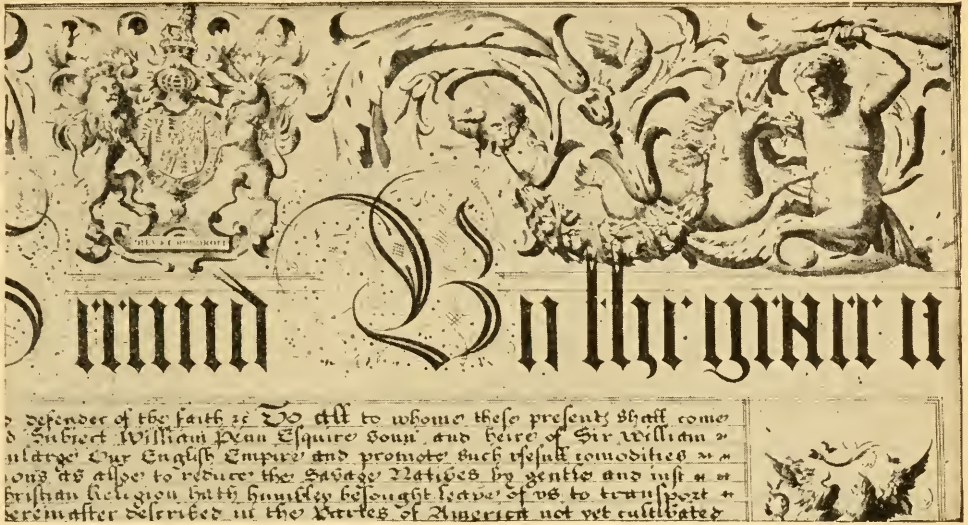 DIEU ET MON DROIT
econd By the grace o
defender of the faith &c To all to whome these presents shall come
Subiect William Penn Esquire sonn and heire of Sir William
nlarge Our English Empire and promote such usefull comodities
ons as alsoe to reduce the Savage Natives by gentle and iust
hristian Religion hath humbley besought leave of vs to transport
ereinafter described in the Partes of America not yet cultivated